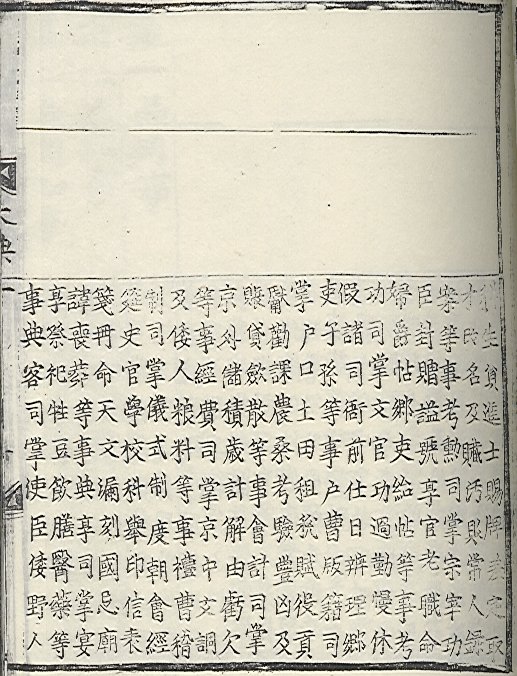 生員進士賜牌差定取
才改名及贓汚敗常人錄
案等事考勳司掌宗宰功
臣封贈諡號享官老職命
婦爵帖鄕吏給帖等事考
功司掌文官功過勤慢休
假諸司衙前仕日辨理鄕
吏子孫等事戶曹版籍司
掌戶口土田租稅賦役貢
獻勸課農桑考驗豐凶及
賑貸斂散等事會計司掌
京外儲積歲計解由虧欠
等事經費司掌京中支調
及倭人粮料等事禮曹稽
制司掌儀式制度朝會經
筵史官學校科擧印信表
箋冊命天文漏刻國忌廟
諱喪葬等事典享司掌宴
享祭祀牲豆飮膳醫藥等
事典客司掌使臣倭野人
大典一